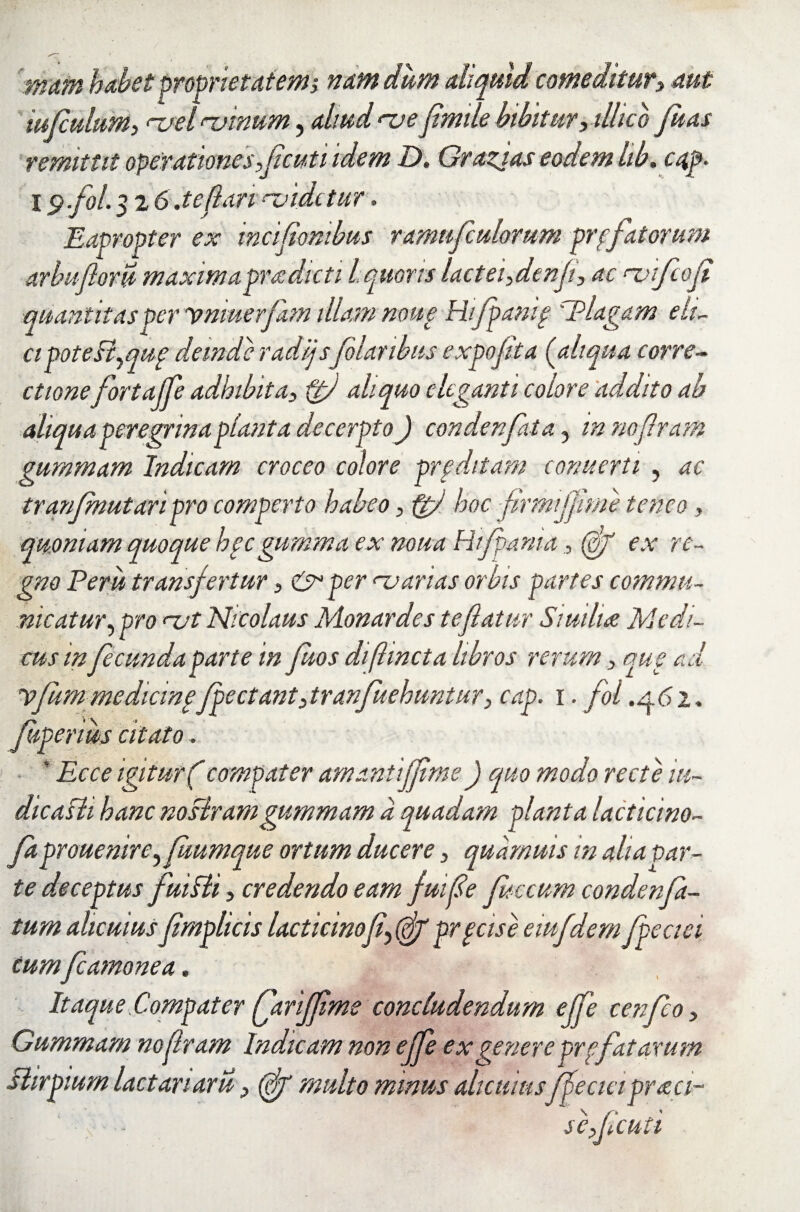 mam habet proprietatem; nam dum aliquid comeditur, aut
iusculum, vel vinum, aliud ve simile bibitur, illico suas
remittit operationes, sicuti idem D. Grazias eodem lib. cap.
19. fol. 326. testari videtur.
Eapropter ex incisionibus ramusculorum pręfatorum
arbustorū maxima prædicti lquoris lactei, densi, ac viscosi
quantitas per vniuersam illam nouę Hispanię Plagam eli-
ci potest, quę deinde radijs solaribus exposita (aliqua corre-
ctione fortasse adhibita, & aliquo eleganti colore addito ab
aliqua peregrina planta decerpto) condensata, in nostram
gummam Indicam croceo colore pręditam conuerti, ac
transmutari pro comperto habeo, & hoc firmissime teneo,
quoniam quoque hęc gumma ex noua Hispania, & ex re-
gno Perù transfertur, & per varias orbis partes commu-
nicatur, pro vt Nicolaus Monardes testatur Siuiliæ Medi-
cus in secunda parte in suos distincta libros rerum, quę ad
vsum medicinę spectant, transuehuntur, cap. 1. fol. 462.
superiùs citato.
Ecce igitur (compater amantissime) quo modo rectè iu-
dicasti hanc nostram gummam à quadam planta lacticino-
sa prouenire, suumque ortum ducere, quàmuis in alia par-
te deceptus fuisti, credendo eam fuisse succum condensa-
tum alicuius simplicis lacticinosi, & pręcisè eiusdem speciei
cum scamonea.
Itaque Compater Carissime concludendum esse censeo,
Gummam nostram Indicam non esse ex genere pręfatarum
stirpium lactariarū, & multo minus alicuius speciei præci-
sè, sicuti